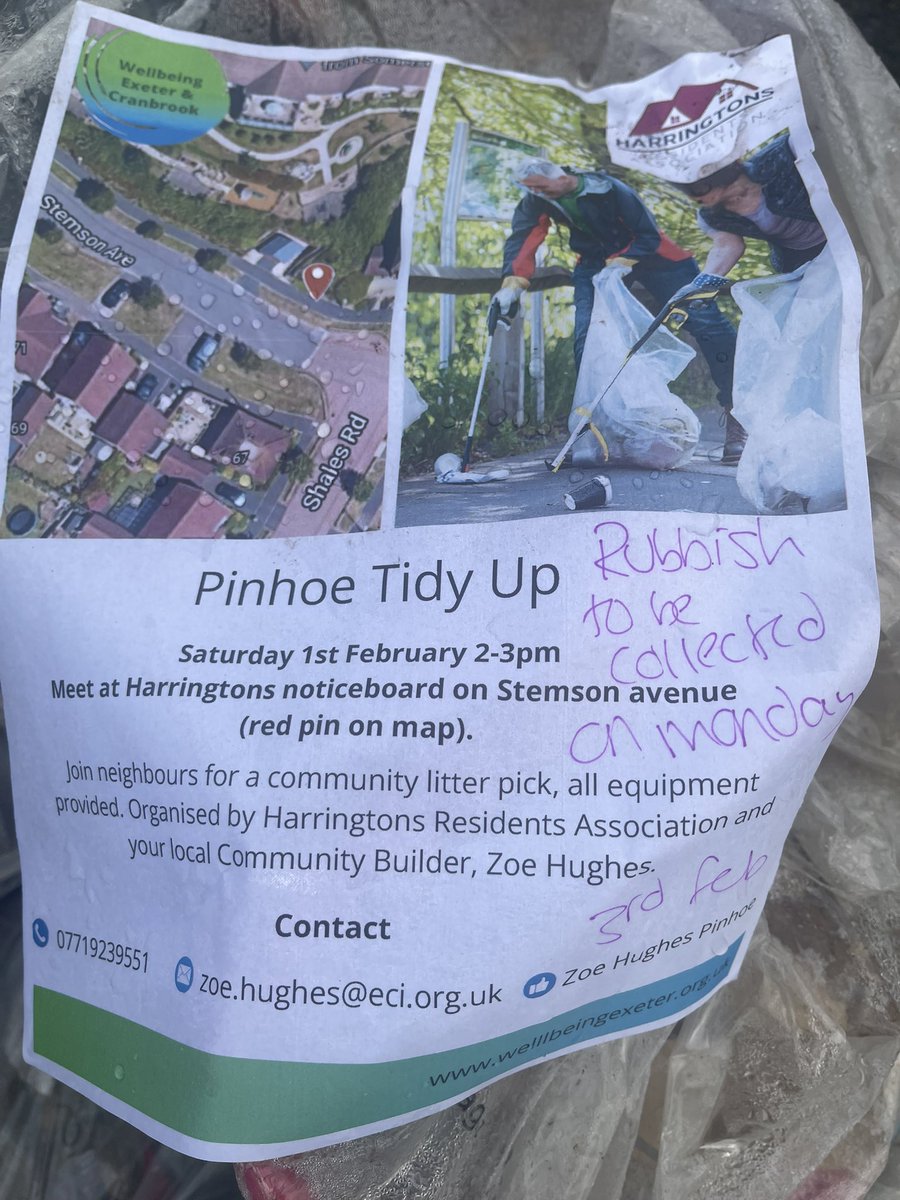 Wellbeing
Exeter &
Cranbrook
HARRINGTONS
ASSOCIATION
Stemson Ave
71
69
67
Shales Rd
Pinhoe Tidy Up
Saturday 1st February 2-3pm
Meet at Harringtons noticeboard on Stemson avenue
(red pin on map).
Join neighbours for a community litter pick, all equipment
provided. Organised by Harringtons Residents Association and
your local Community Builder, Zoe Hughes.
Contact
07719239551
zoe.hughes@eci.org.uk
Zoe Hughes Pinhoe
www.welllbeingexeter.org.uk
Rubbish
to be
collected
on monday
3rd Feb